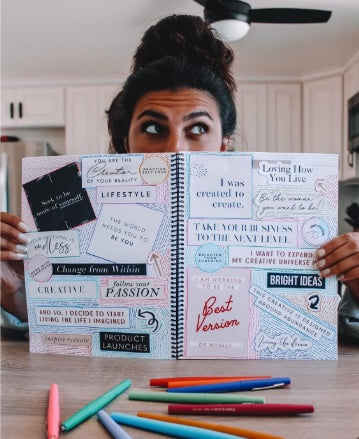 YOU ARE THE
Creator
OF YOUR REALITY
PRACTICE
SELF LOVE
Seek to be
more of yourself.
LIFESTYLE
THE WORLD
NEEDS YOU TO
BE YOU
Less
Change from Within
CREATIVE
follow your
PASSION
AND SO, I DECIDE TO START
LIVING THE LIFE I IMAGINED
inspire + create
PRODUCT
LAUNCHES
I was
created to
create.
Loving How
You Live
Be the woman
you want to be
TAKE YOUR BUSINESS
TO THE NEXT LEVEL
I WANT TO EXPAND
MY CREATIVE UNIVERSE
I AM WORKING
TO BE THE
Best
Version
OF MYSELF
BRIGHT IDEAS
THE CREATIVE IS DESIGNED
AROUND ABUNDANCE
Living the dream